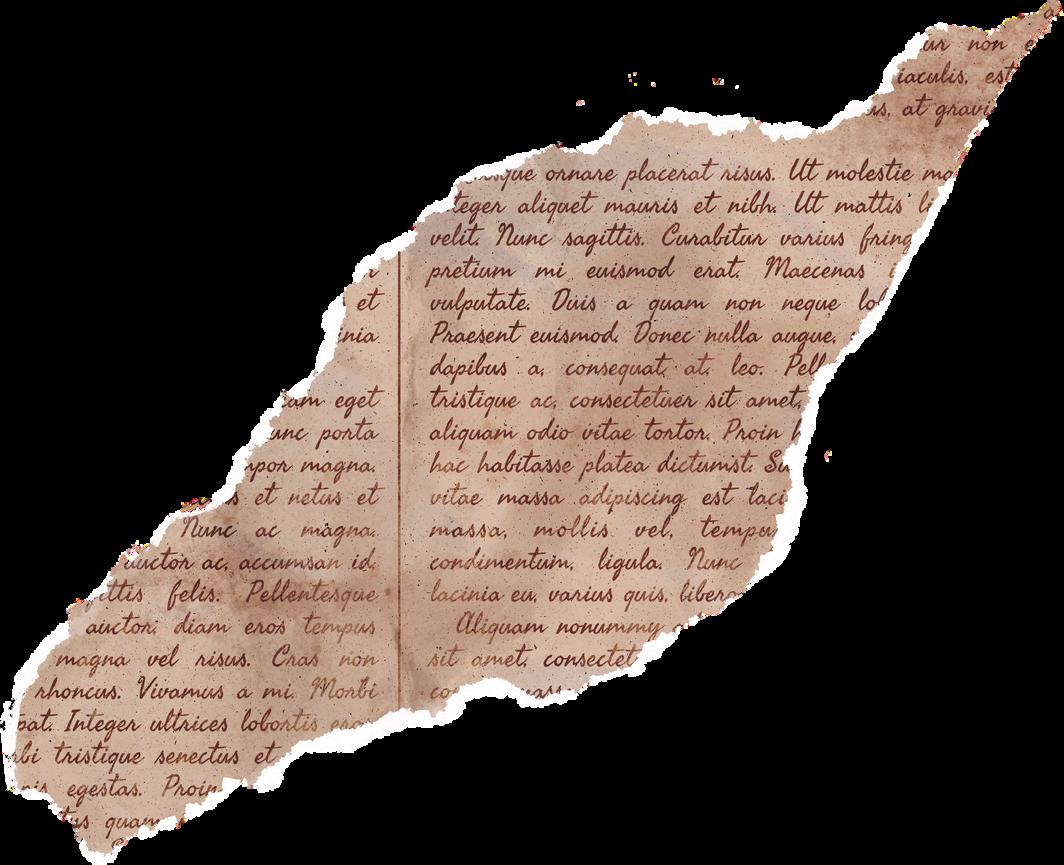 et
eget
porta
magna.
et netus et
Nunc ac magna.
auctor ac, accumsan id,
felis. Pellentesque
auctor, diam eros tempus
magna vel risus. Cras non
rhoncus. Vivamus a mi. Morbi
Integer ultrices lobortis
tristique senectus et
egestas. Proin
quam
non
iaculis, est
at
ornare placerat risus. Ut molestie
aliquet mauris et nibh. Ut mattis
velit. Nunc sagittis. Curabitur varius
pretium mi euismod erat. Maecenas
vulputate. Duis a quam non neque
Praesent euismod. Donec nulla augue,
dapibus a, consequat at, leo.
tristique ac, consectetuer sit amet,
aliquam odio vitae tortor. Proin
hac habitasse platea dictumst.
vitae massa adipiscing est
massa, mollis vel,
condimentum, ligula. Nunc
lacinia eu, varius quis,
Aliquam nonummy
sit amet,